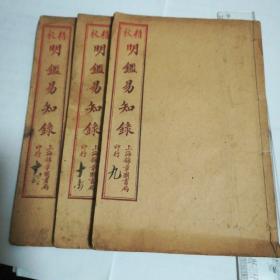 精校
明鑑易知錄
上海錦章圖書局
印行
九
精校
明鑑易知錄
上海錦章圖書局
印行
校
明鑑易知錄
上海錦章圖書局
印行